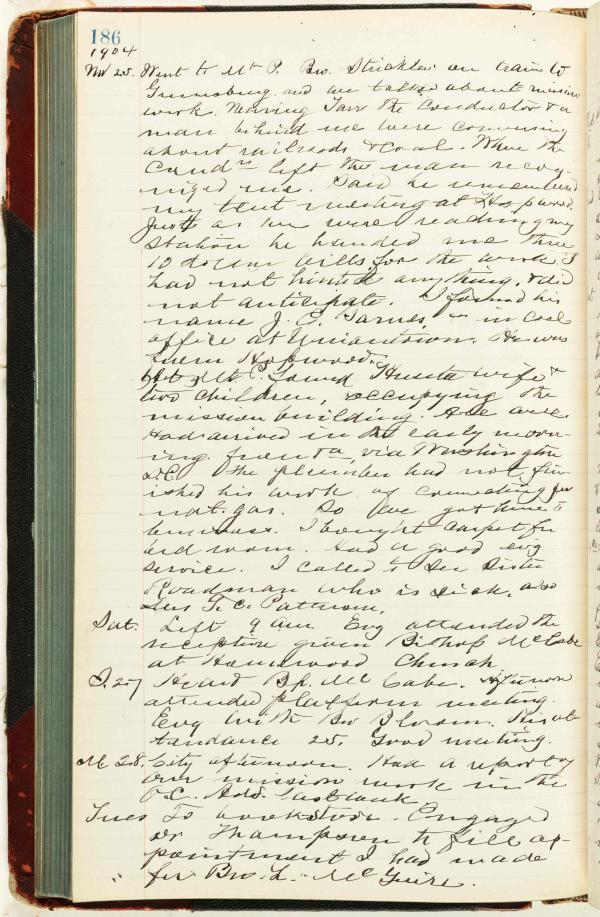 186
1904
Nov 25. Went to Mt P. Bro. Strickler on train to
Greensburg and we talked about mission
work. Nearing Tarr the Conductor & a
man behind me were conversing
about railroads & coal. When the
Cond left the man recog-
nized me. Said he remembered
my tent meeting at Hopwood.
Just as we were reading my
station he handed me three
10 dollar bills for the work. I
had not hinted anything, & did
not anticipate. I found his
name J. C. Barnes, in coal
office at Uniontown. He was
from Hopwood.
At Mt P. found wife &
two children, occupying the
mission building. All were
Had arrived in the early morn-
ing from via Washington
D.C. The plumber had not fin-
ished his work of connecting for
nat. gas. So we got him to
business. I bought carpet for
bed room. Had a good evg
service. I called to see Sister
Roadman who is sick, also
T. C. Patterson.
Sat. Left 9 am Evg attended the
reception given Bishop McCabe
at Homewood Church
S. 27 Heard Bp. McCabe. Afternoon
attended platform meeting.
Evg with Bro Bloom. His at-
tendance 25. Good meeting.
M 28. City afternoon. Had a report of
our mission work in the
P.C. Adv. last week
Tues To bookstore. Engaged
Dr Thompson to fill ap-
pointment I had made
for Bro. L. McGuire.